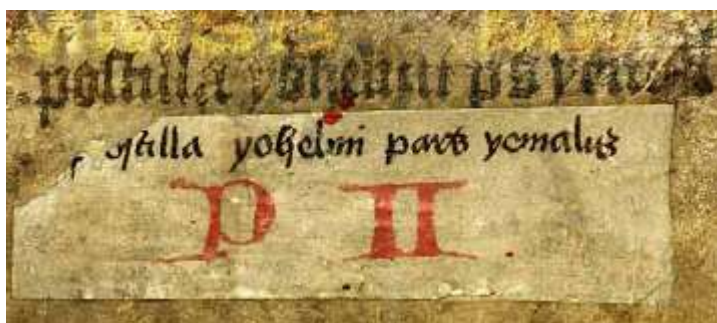 postilla yohelmi ps
postilla yohelmi pars yemalis
P II.